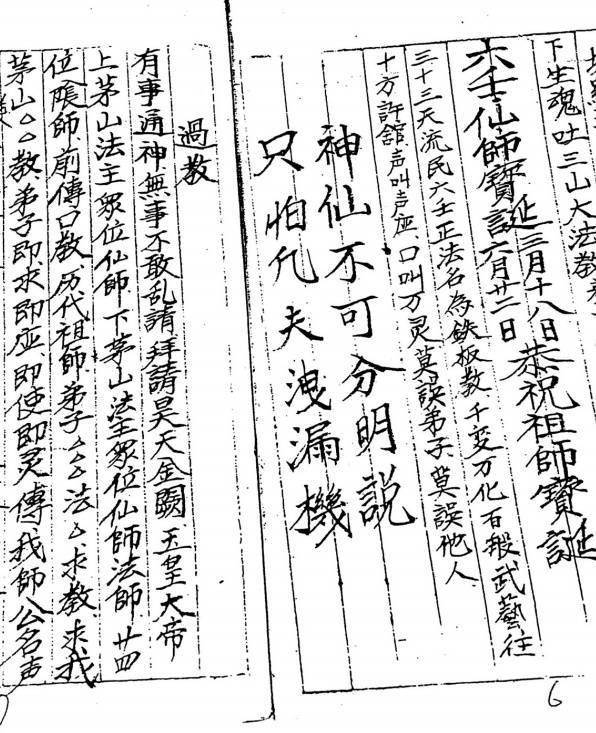 下生魂吐三山大法教
六壬仙師寶誕三月十八日六月廿二日恭祝祖師寶誕
三十三天流民六壬正法名為鉄板教千变万化百般武藝往
十方許舘声叫声应口叫万灵莫誤弟子莫誤他人
神仙不可分明說
只怕凡夫洩漏機
6
過教
有事通神無事不敢乱請拜請昊天金闕玉皇大帝
上茅山法主眾位仙師下茅山法主眾位仙師法師廿四
位師前傳口教历代祖師弟子△△△法△求教求我
茅山△△教弟子即求即应即使即灵傳我師公名声